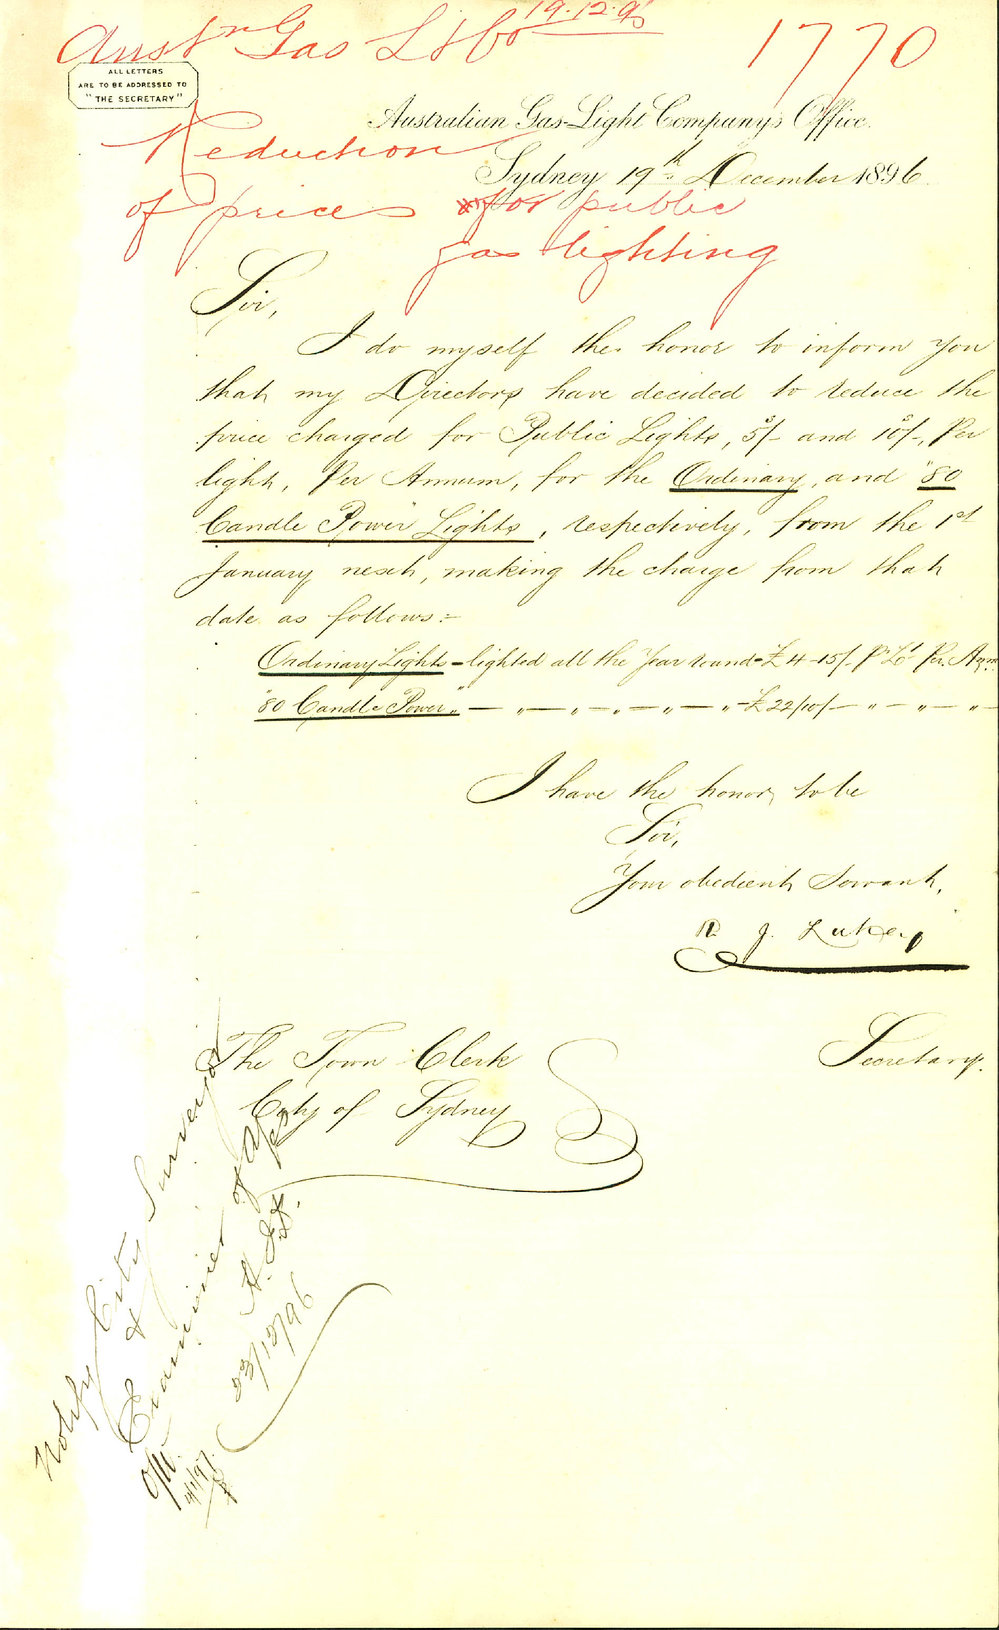 Austn Gas Lt Co 19.12.96
1770
ALL LETTERS
ARE TO BE ADDRESSED TO
"THE SECRETARY"
Australian Gas-Light Company's Office.
Reduction
Sydney 19th December 1896.
of prices for public
gas lighting
Sir,
I do myself the honor to inform you
that my Directors have decided to reduce the
price charged for Public Lights, 5/- and 10/-, Per
light, Per Annum, for the Ordinary, and "80
Candle Power" Lights, respectively, from the 1st
January next, making the charge from that
date as follows:-
Ordinary Lights - lighted all the Year round - £4-15/- Pr Lt Per Anm
"80 Candle Power" - " - " - " - " - " - £22/10/- " - " - " -
I have the honor, to be
Sir,
Your obedient Servant,
R. J. Lukey
Secretary.
The Town Clerk
City of Sydney
Notify City Surveyor
& Examiner of A/cs
H.
23/12/96